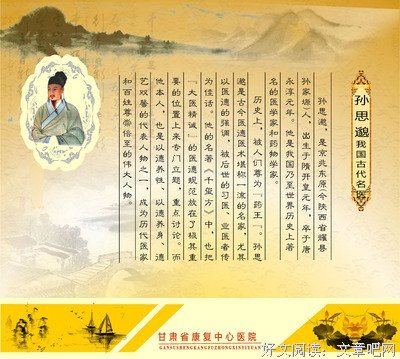 孙思邈 我国古代名医
孙思邈,是京兆东原(今陕西省耀县
孙家塬)人,出生于隋开皇元年,卒于唐
永淳元年。他是我国乃至世界历史上著
名的医学家和药物学家。
历史上,被人们尊为“药王”。孙思
邈是古今医德医术堪称一流的名家,尤其
以医德的强调,被后世的习医、业医者传
为佳话。他的名著《千金方》中,也把
“大医精诚”的医德规范放在了极其重
要的位置上来专门立题,重点讨论。而
他本人,也是以德养性、以德养身、德
艺双馨的代表人物之一,成为历代医家
和百姓尊崇倍至的伟大人物。
甘肃省康复中心医院
GANSUSHENGKANGFUZHONGXINYIYUAN
好文阅读:文章吧网